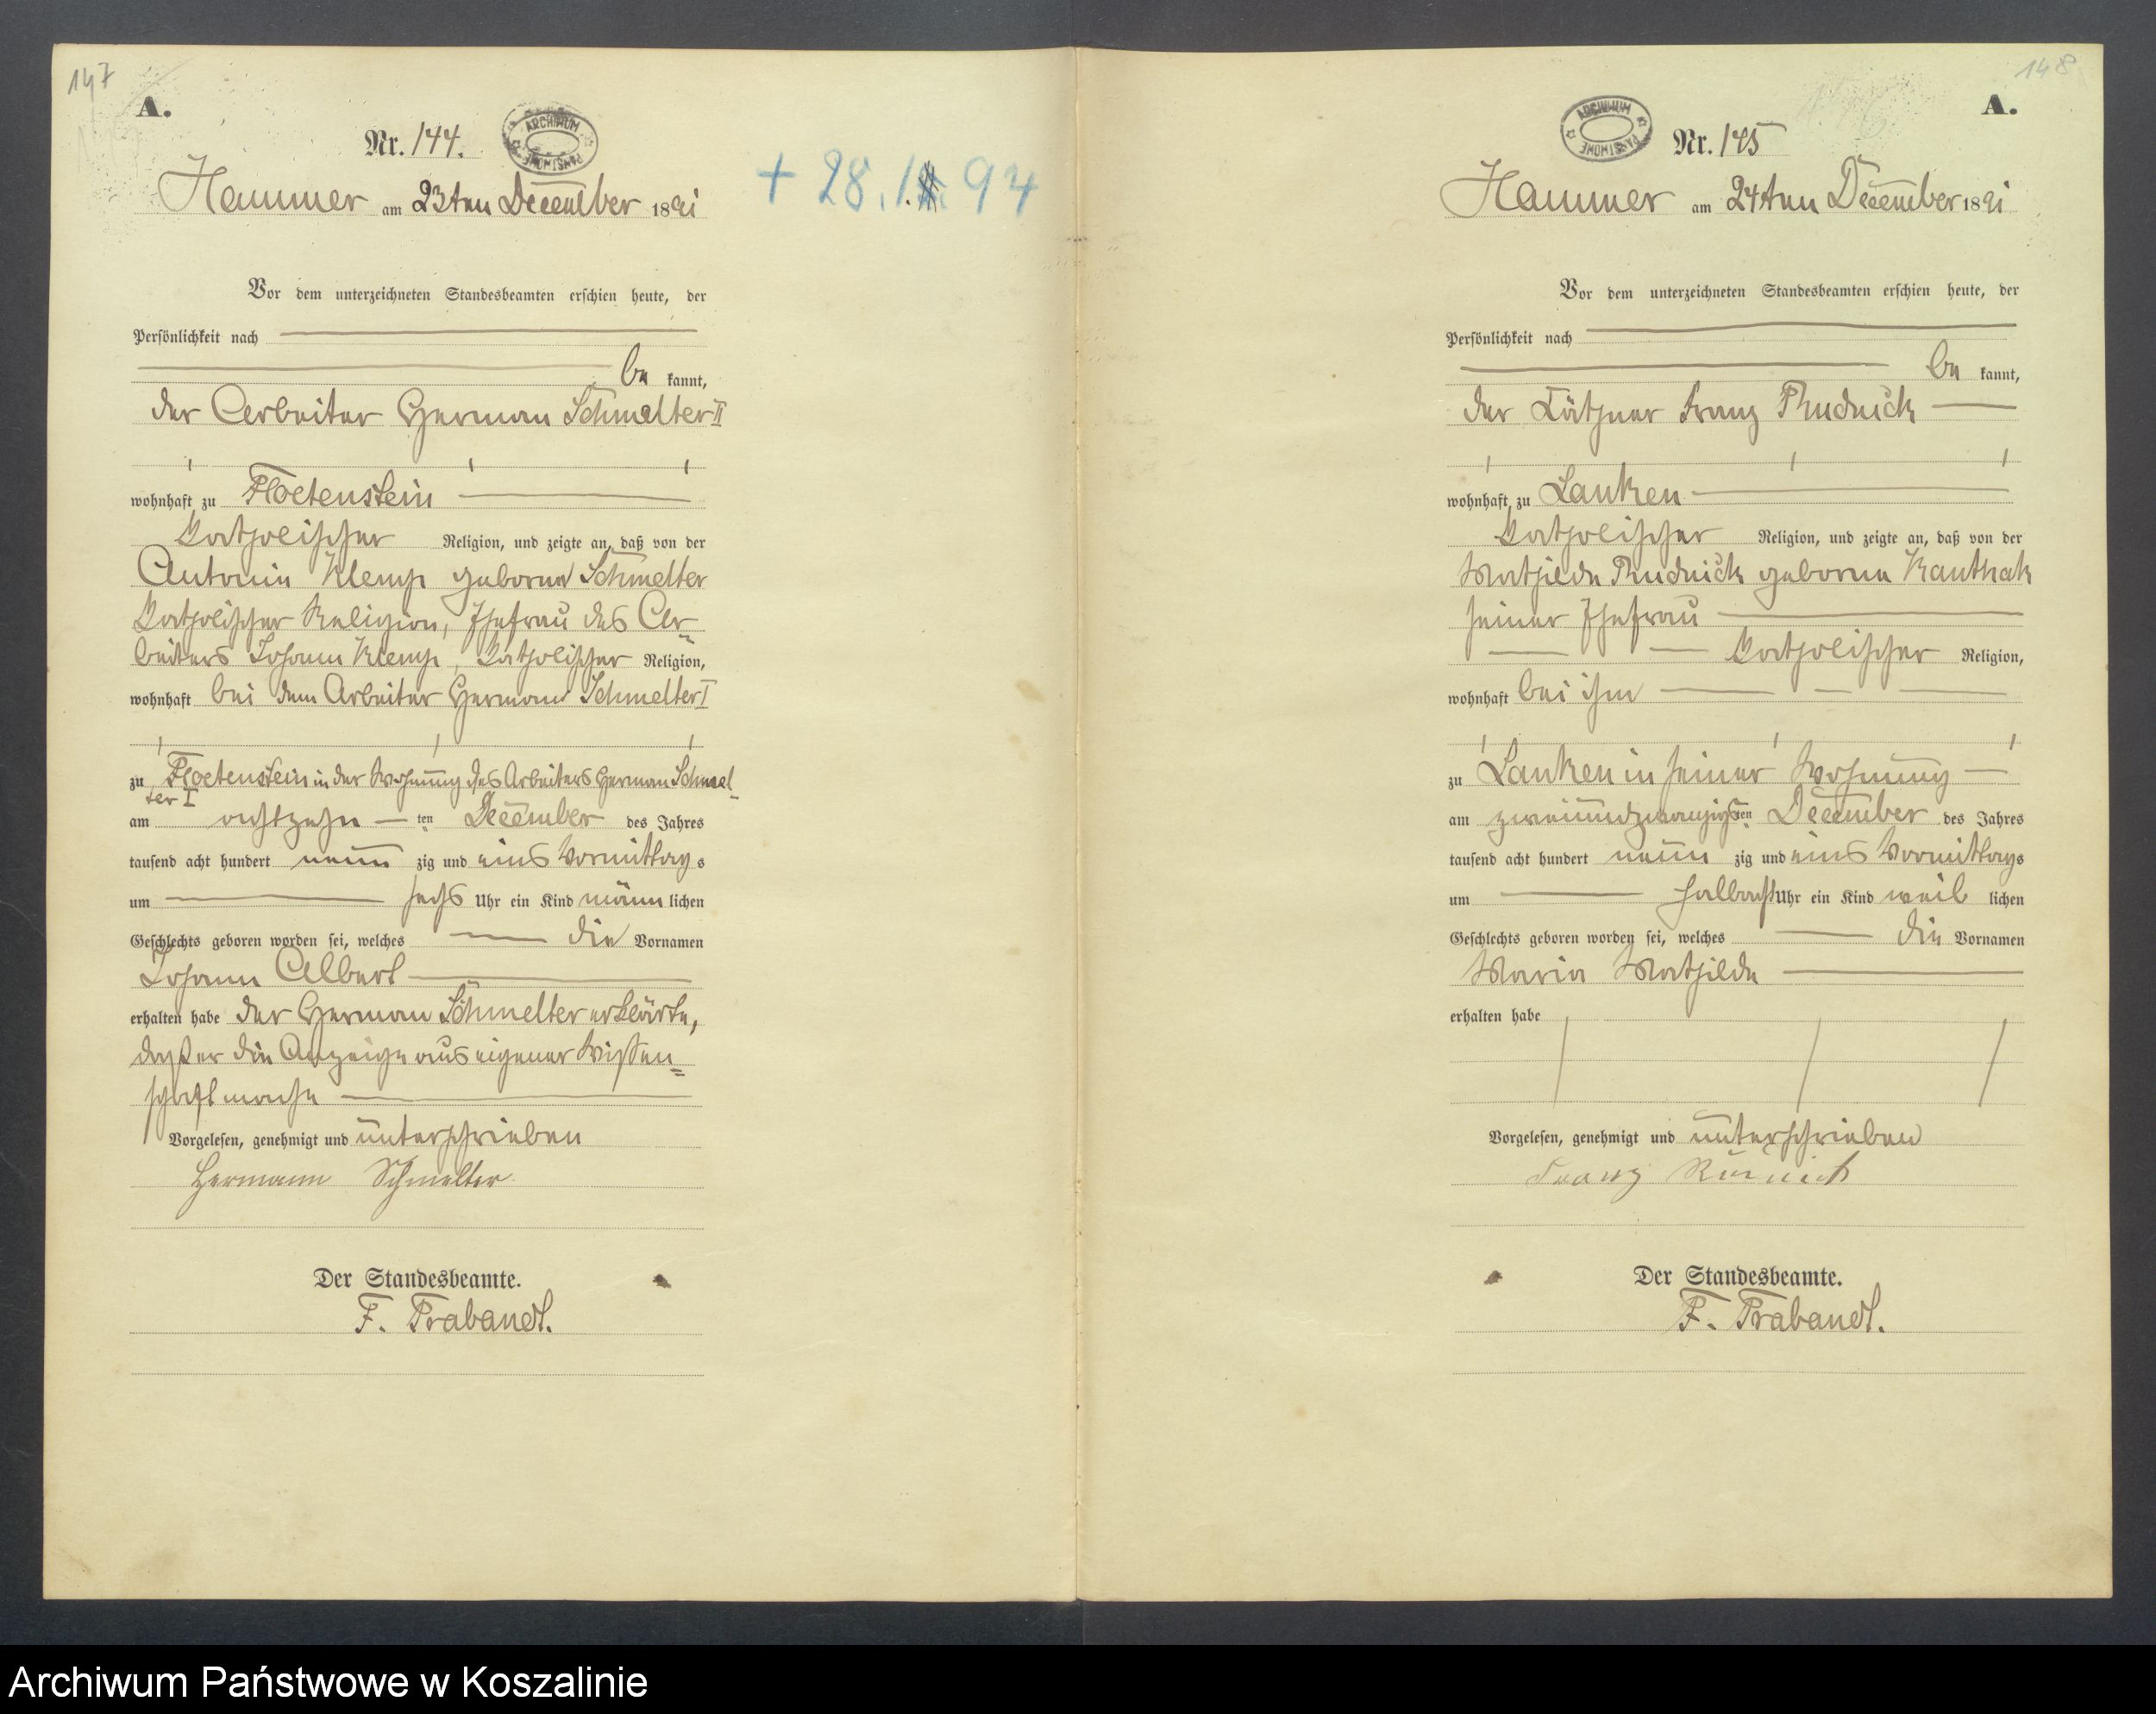 147
A.
Nr. 144.
ARCHIWUM PAŃSTWOWE
Hammer am 23ten December 1891
+ 28. 1. 94
Vor dem unterzeichneten Standesbeamten erschien heute, der
Persönlichkeit nach
be kannt,
der Arbeiter Herman Schmelter II
wohnhaft zu Floetenstein
katholischer Religion, und zeigte an, daß von der
Antonie Klemp geborne Schmelter
katholischer Religion, Ehefrau des Ar-
beiters Johann Klemp, katholischer Religion,
wohnhaft bei dem Arbeiter Herman Schmelter I
zu Floetenstein in der Wohnung des Arbeiters Herman Schmel-
ter I
am achtzehn ten December des Jahres
tausend acht hundert neun zig und eins Vormittags
um sechs Uhr ein Kind männ lichen
Geschlechts geboren worden sei, welches die Vornamen
Johann Albert
erhalten habe der Herman Schmelter erklärte,
daß er die Anzeige aus eigener Wissen=
schaft mache
Vorgelesen, genehmigt und unterschrieben
Hermann Schmelter
Der Standesbeamte.
F. Prabandt.
148
A.
ARCHIWUM PAŃSTWOWE
Nr. 145
Hammer am 24ten December 1891
Vor dem unterzeichneten Standesbeamten erschien heute, der
Persönlichkeit nach
be kannt,
der Käthner Franz Rudnick
wohnhaft zu Lanken
katholischer Religion, und zeigte an, daß von der
Mathilde Rudnick geborne Kanthak
seiner Ehefrau
katholischer Religion,
wohnhaft bei ihm
zu Lanken in seiner Wohnung
am zweiundzwanzigsten December des Jahres
tausend acht hundert neun zig und eins Vormittags
um halbacht Uhr ein Kind weib lichen
Geschlechts geboren worden sei, welches die Vornamen
Maria Mathilde
erhalten habe
Vorgelesen, genehmigt und unterschrieben
Franz
Der Standesbeamte.
F. Prabandt.
Archiwum Państwowe w Koszalinie